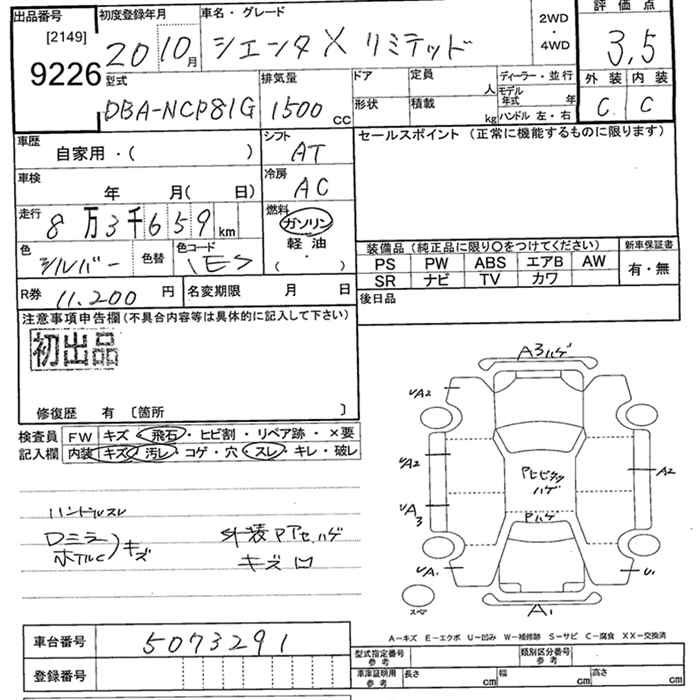 出品番号 初度登録年月 車名・グレード 2WD・4WD 評価点
[2149]
9226 20 10月 シエンタ X リミテッド 3,5
外装 内装
C C
型式 排気量 ドア 定員 人 ディーラー・並行
DBA-NCP81G 1500cc 形状 積載 kg モデル年式 年
ハンドル 左・右
車歴 シフト セールスポイント(正常に機能するものに限ります)
自家用・( ) AT
車検 冷房
年 月( 日) AC
走行 燃料
8万3千659km ガソリン
色 色替 色コード 軽油
シルバー 1E7 ( ・ )
装備品(純正品に限り○をつけてください) 新車保証書
PS PW ABS エアB AW 有・無
SR ナビ TV カワ
R券 11,200円 名変期限 月 日 後日品
注意事項申告欄(不具合内容等は具体的に記入して下さい)
初出品
修復歴 有 〔箇所 〕
検査員 FW キズ・飛石・ヒビ割・リペア跡・×要
記入欄 内装 キズ・汚レ・コゲ・穴・スレ・キレ・破レ
ハンドルスレ
Dミラー
ホイルC キズ
外装Pアセハゲ
キズ凹
A3ハゲ
UA2
UA2
A2
Pヒビタク
ハゲ
UA3
Pハゲ
UA1
U1
スペアー
A1
A-キズ E-エクボ U-凹み W-補修跡 S-サビ C-腐食 XX-交換済
車台番号 5073291
型式指定番号 参考 類別区分番号 参考
登録番号
車庫証明用 参考 長さ cm 幅 cm 高さ cm